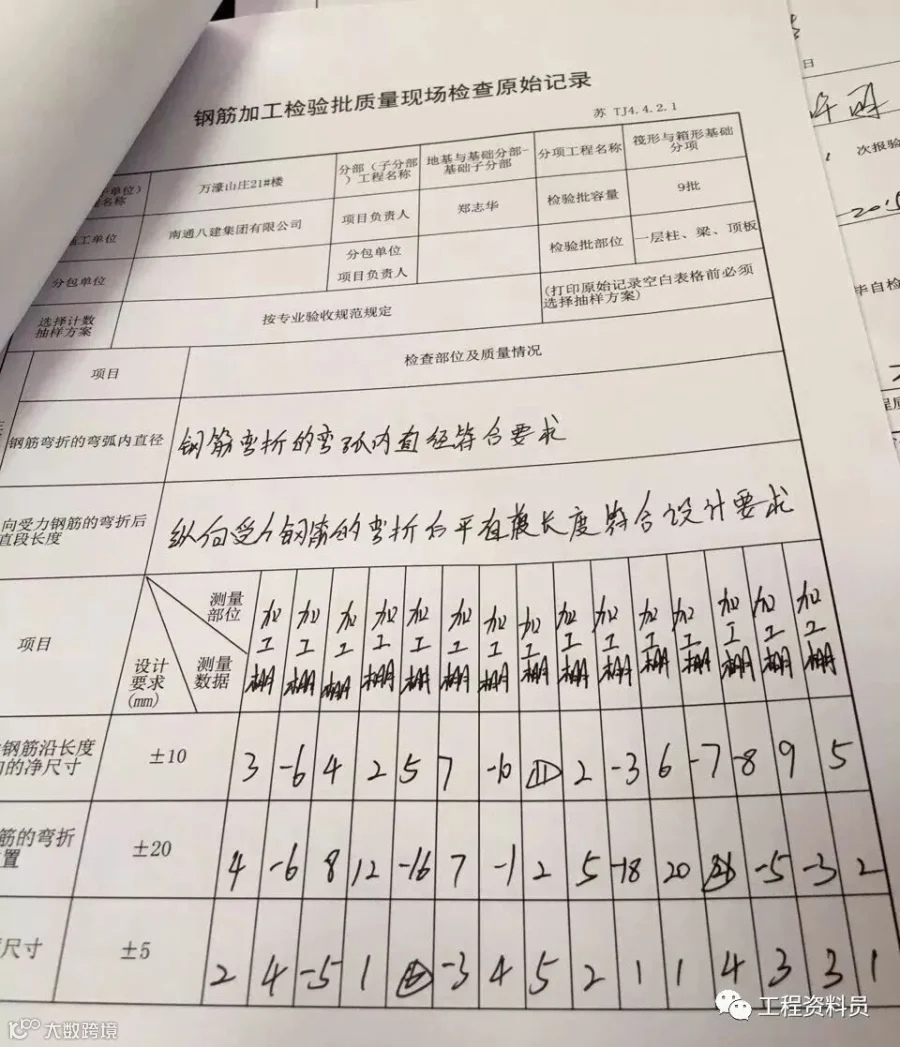 钢筋加工检验批质量现场检查原始记录
苏 TJ4.4.2.1
单位)
程名称
万濠山庄21#楼
分部(子分部
)工程名称
地基与基础分部-
基础子分部
分项工程名称
筏形与箱形基础
分项
工单位
南通八建集团有限公司
项目负责人
郑志华
检验批容量
9批
分包单位
分包单位
项目负责人
检验批部位
一层柱、梁、顶板
选择计数
抽样方案
按专业验收规范规定
(打印原始记录空白表格前必须
选择抽样方案)
项目
检查部位及质量情况
钢筋弯折的弯弧内直径
钢筋弯折的弯弧内直径符合要求
向受力钢筋的弯折后
直段长度
纵向受力钢筋的弯折后平直段长度符合设计要求
项目
设计
要求
(mm)
测量
部位
测量
数据
加工棚 加工棚 加工棚 加工棚 加工棚 加工棚 加工棚 加工棚 加工棚 加工棚 加工棚 加工棚 加工棚 加工棚 加工棚
钢筋沿长度
的净尺寸
±10
3 -6 4 2 5 7 -10 11 2 -3 6 -7 -8 9 5
筋的弯折
置
±20
4 -6 8 12 -16 7 -1 2 5 -18 20 -5 -3 2
尺寸
±5
2 4 -5 1 -3 4 5 2 1 1 4 3 3 1
日
次报验
2015
毕自检
工程资料员
大数跨境